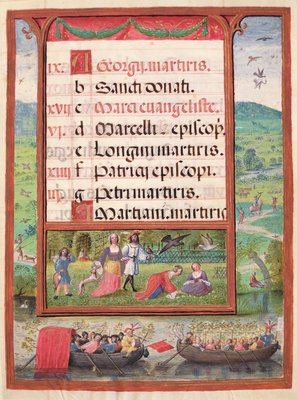 ix. A Georgij martiris.
b Sancti donati.
xvij c Marci euangeliste.
vi. d Marcelli episcop.
e Longini martiris.
xiiij f Patricij episcopi.
iij. g Petri martiris.
A Martiani martiris